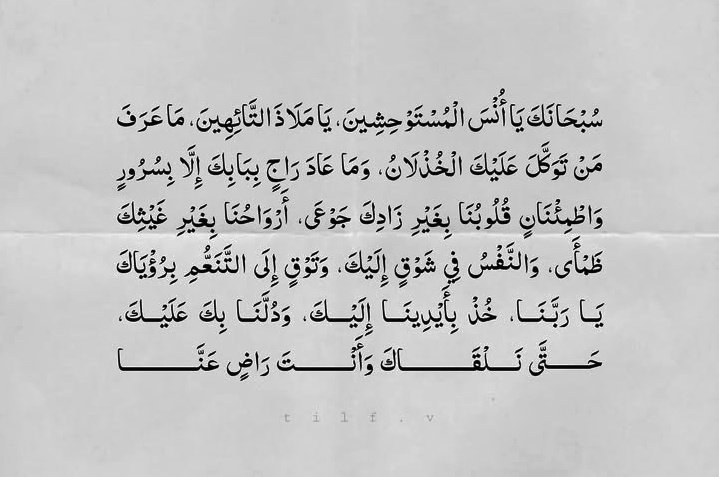 سُبْحَانَكَ يَا أُنْسَ الْمُسْتَوْحِشِينَ، يَا مَلَاذَ التَّائِهِينَ، مَا عَرَفَ
مَنْ تَوَكَّلَ عَلَيْكَ الْخُذْلَانُ، وَمَا عَادَ رَاجٍ بِبَابِكَ إِلَّا بِسُرُورٍ
وَاطْمِئْنَانٍ قُلُوبُنَا بِغَيْرِ زَادِكَ جَوْعَى، أَرْوَاحُنَا بِغَيْرِ غَيْثِكَ
ظَمْأَى، وَالنَّفْسُ فِي شَوْقٍ إِلَيْكَ، وَتَوْقٍ إِلَى التَّنَعُّمِ بِرُؤْيَاكَ
يَـا رَبَّنَـا، خُذْ بِأَيْدِينَـا إِلَيْـكَ، وَدُلَّنَـا بِكَ عَلَيْـكَ،
حَـتَّى نَـلْقَـاكَ وَأَنْـتَ رَاضٍ عَنَّـا
tilf.v